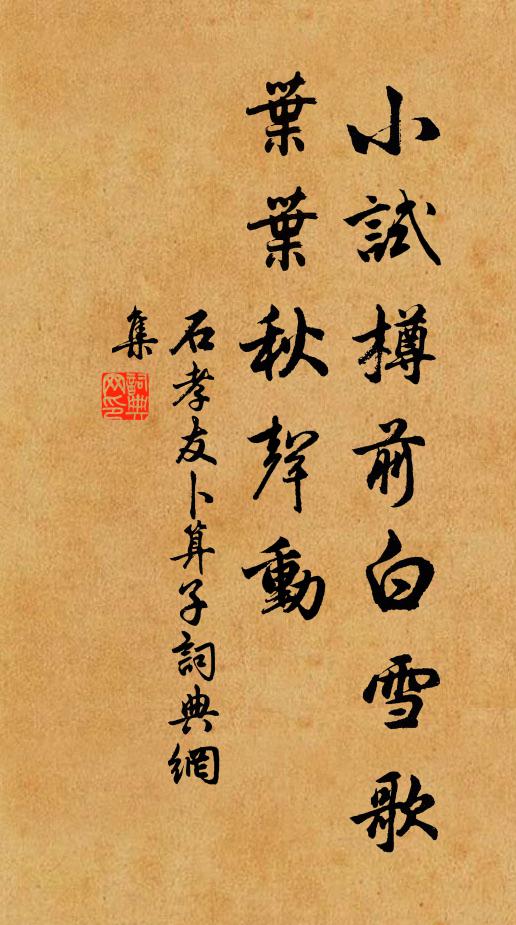 小試樽前白雪歌
葉葉秋聲動
石孝友卜算子詞典網
集
詞典网印